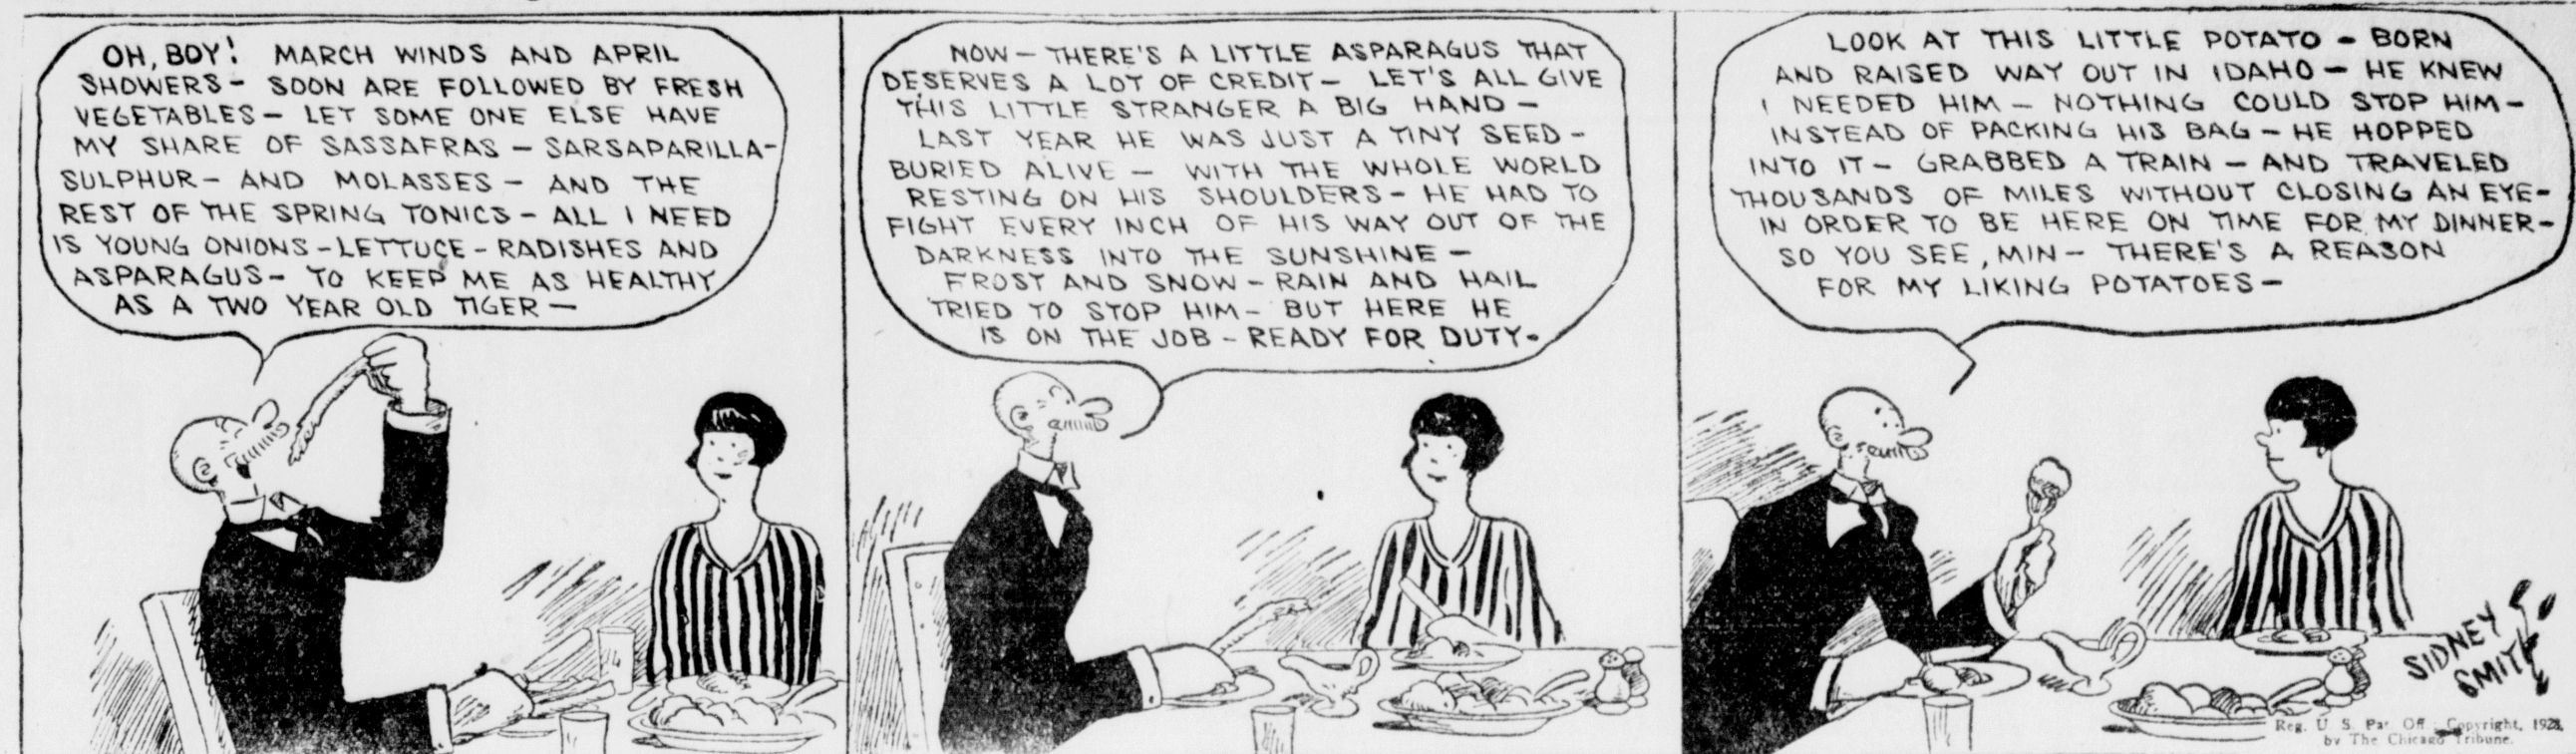 OH, BOY! MARCH WINDS AND APRIL
SHOWERS- SOON ARE FOLLOWED BY FRESH
VEGETABLES- LET SOME ONE ELSE HAVE
MY SHARE OF SASSAFRAS - SARSAPARILLA-
SULPHUR- AND MOLASSES- AND THE
REST OF THE SPRING TONICS- ALL I NEED
IS YOUNG ONIONS-LETTUCE-RADISHES AND
ASPARAGUS- TO KEEP ME AS HEALTHY
AS A TWO YEAR OLD TIGER-
NOW- THERE'S A LITTLE ASPARAGUS THAT
DESERVES A LOT OF CREDIT- LET'S ALL GIVE
THIS LITTLE STRANGER A BIG HAND-
LAST YEAR HE WAS JUST A TINY SEED-
BURIED ALIVE- WITH THE WHOLE WORLD
RESTING ON HIS SHOULDERS- HE HAD TO
FIGHT EVERY INCH OF HIS WAY OUT OF THE
DARKNESS INTO THE SUNSHINE-
FROST AND SNOW- RAIN AND HAIL
TRIED TO STOP HIM- BUT HERE HE
IS ON THE JOB- READY FOR DUTY-
LOOK AT THIS LITTLE POTATO- BORN
AND RAISED WAY OUT IN IDAHO- HE KNEW
I NEEDED HIM- NOTHING COULD STOP HIM-
INSTEAD OF PACKING HIS BAG- HE HOPPED
INTO IT- GRABBED A TRAIN- AND TRAVELED
THOUSANDS OF MILES WITHOUT CLOSING AN EYE-
IN ORDER TO BE HERE ON TIME FOR MY DINNER-
SO YOU SEE, MIN- THERE'S A REASON
FOR MY LIKING POTATOES-
SIDNEY
SMITH
Reg. U. S. Pat. Off.; Copyright, 1928,
by The Chicago Tribune.